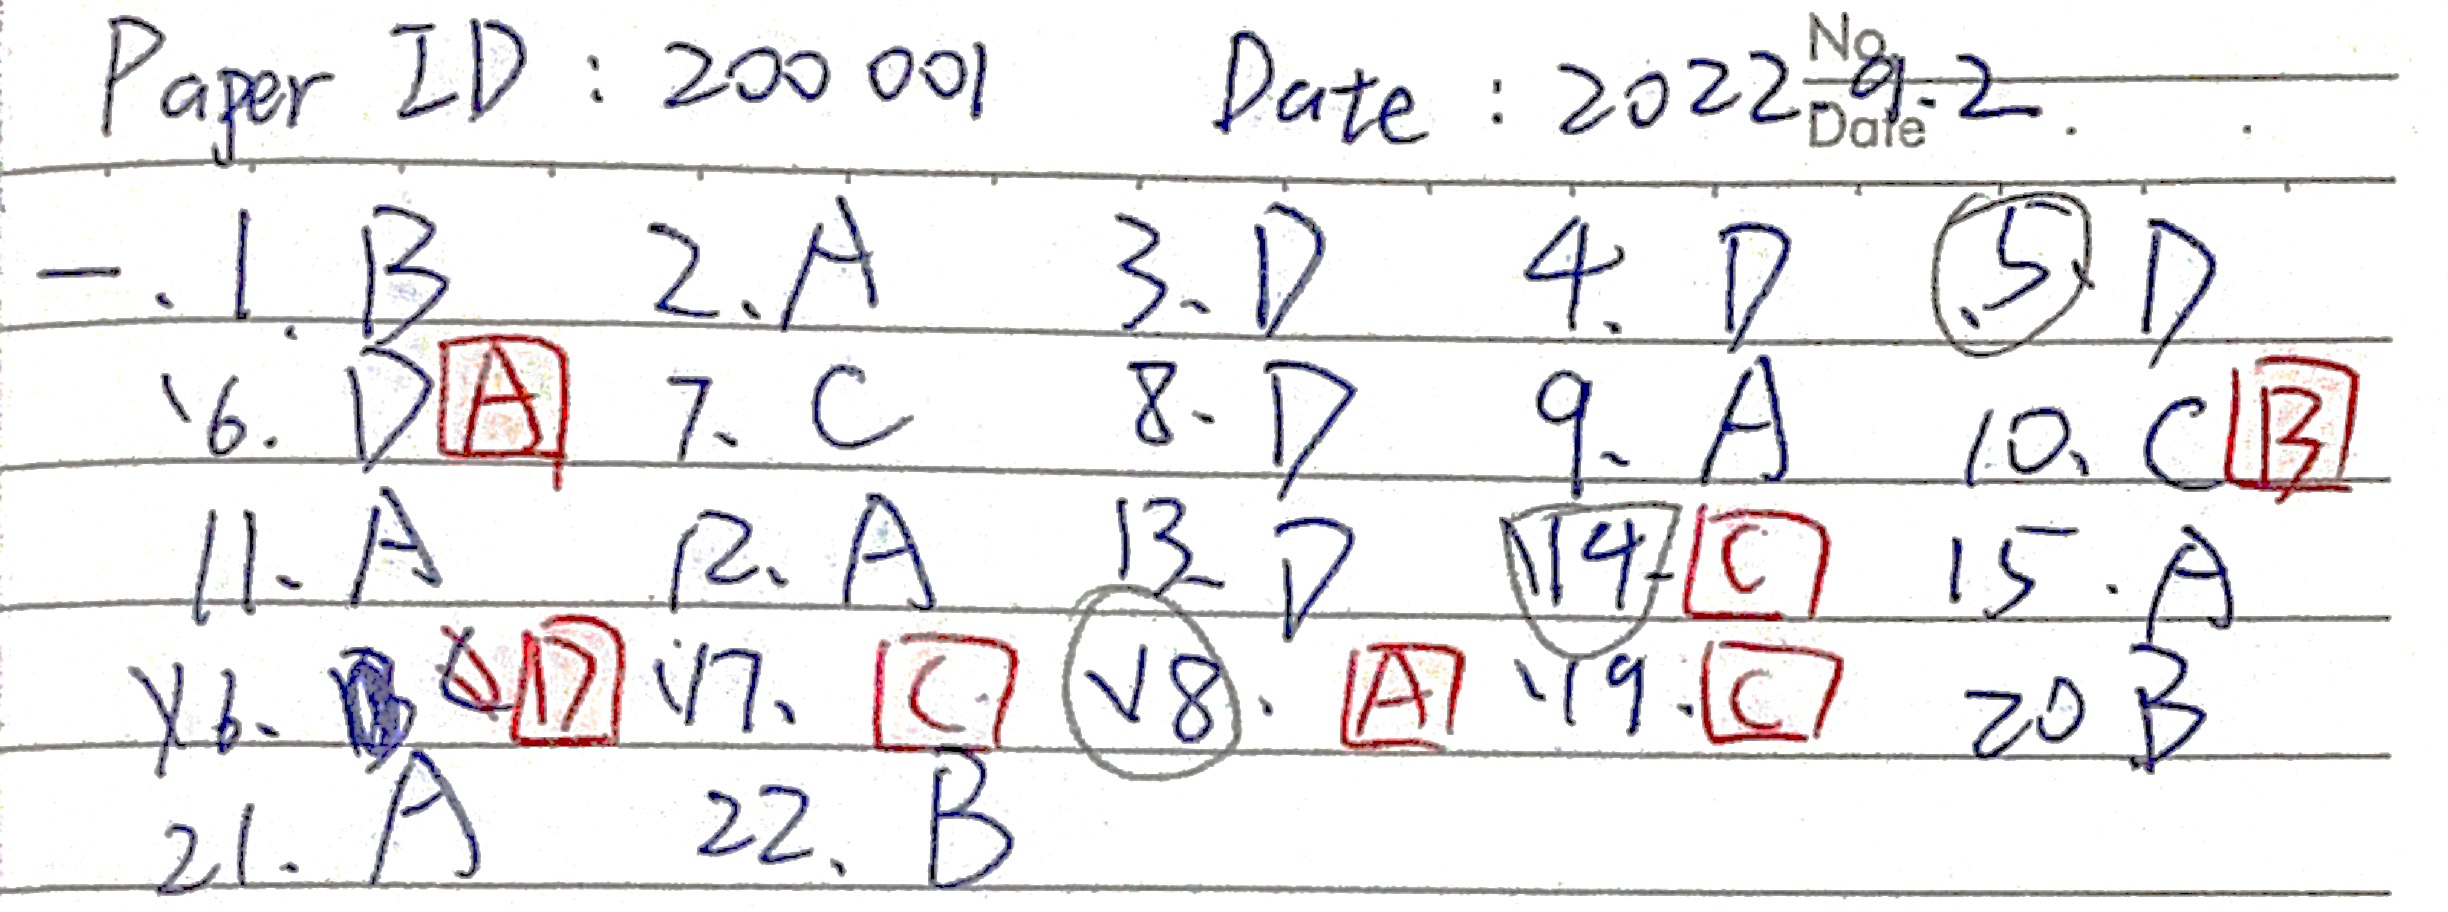 Paper ID : 200 001 Date : 2022.9.2.
No.
Date
一. 1. B 2. A 3. D 4. D 5. D
6. D A 7. C 8. D 9. A 10. C B
11. A 12. A 13. D 14. C 15. A
16. D 17. C 18. A 19. C 20 B
21. A 22. B